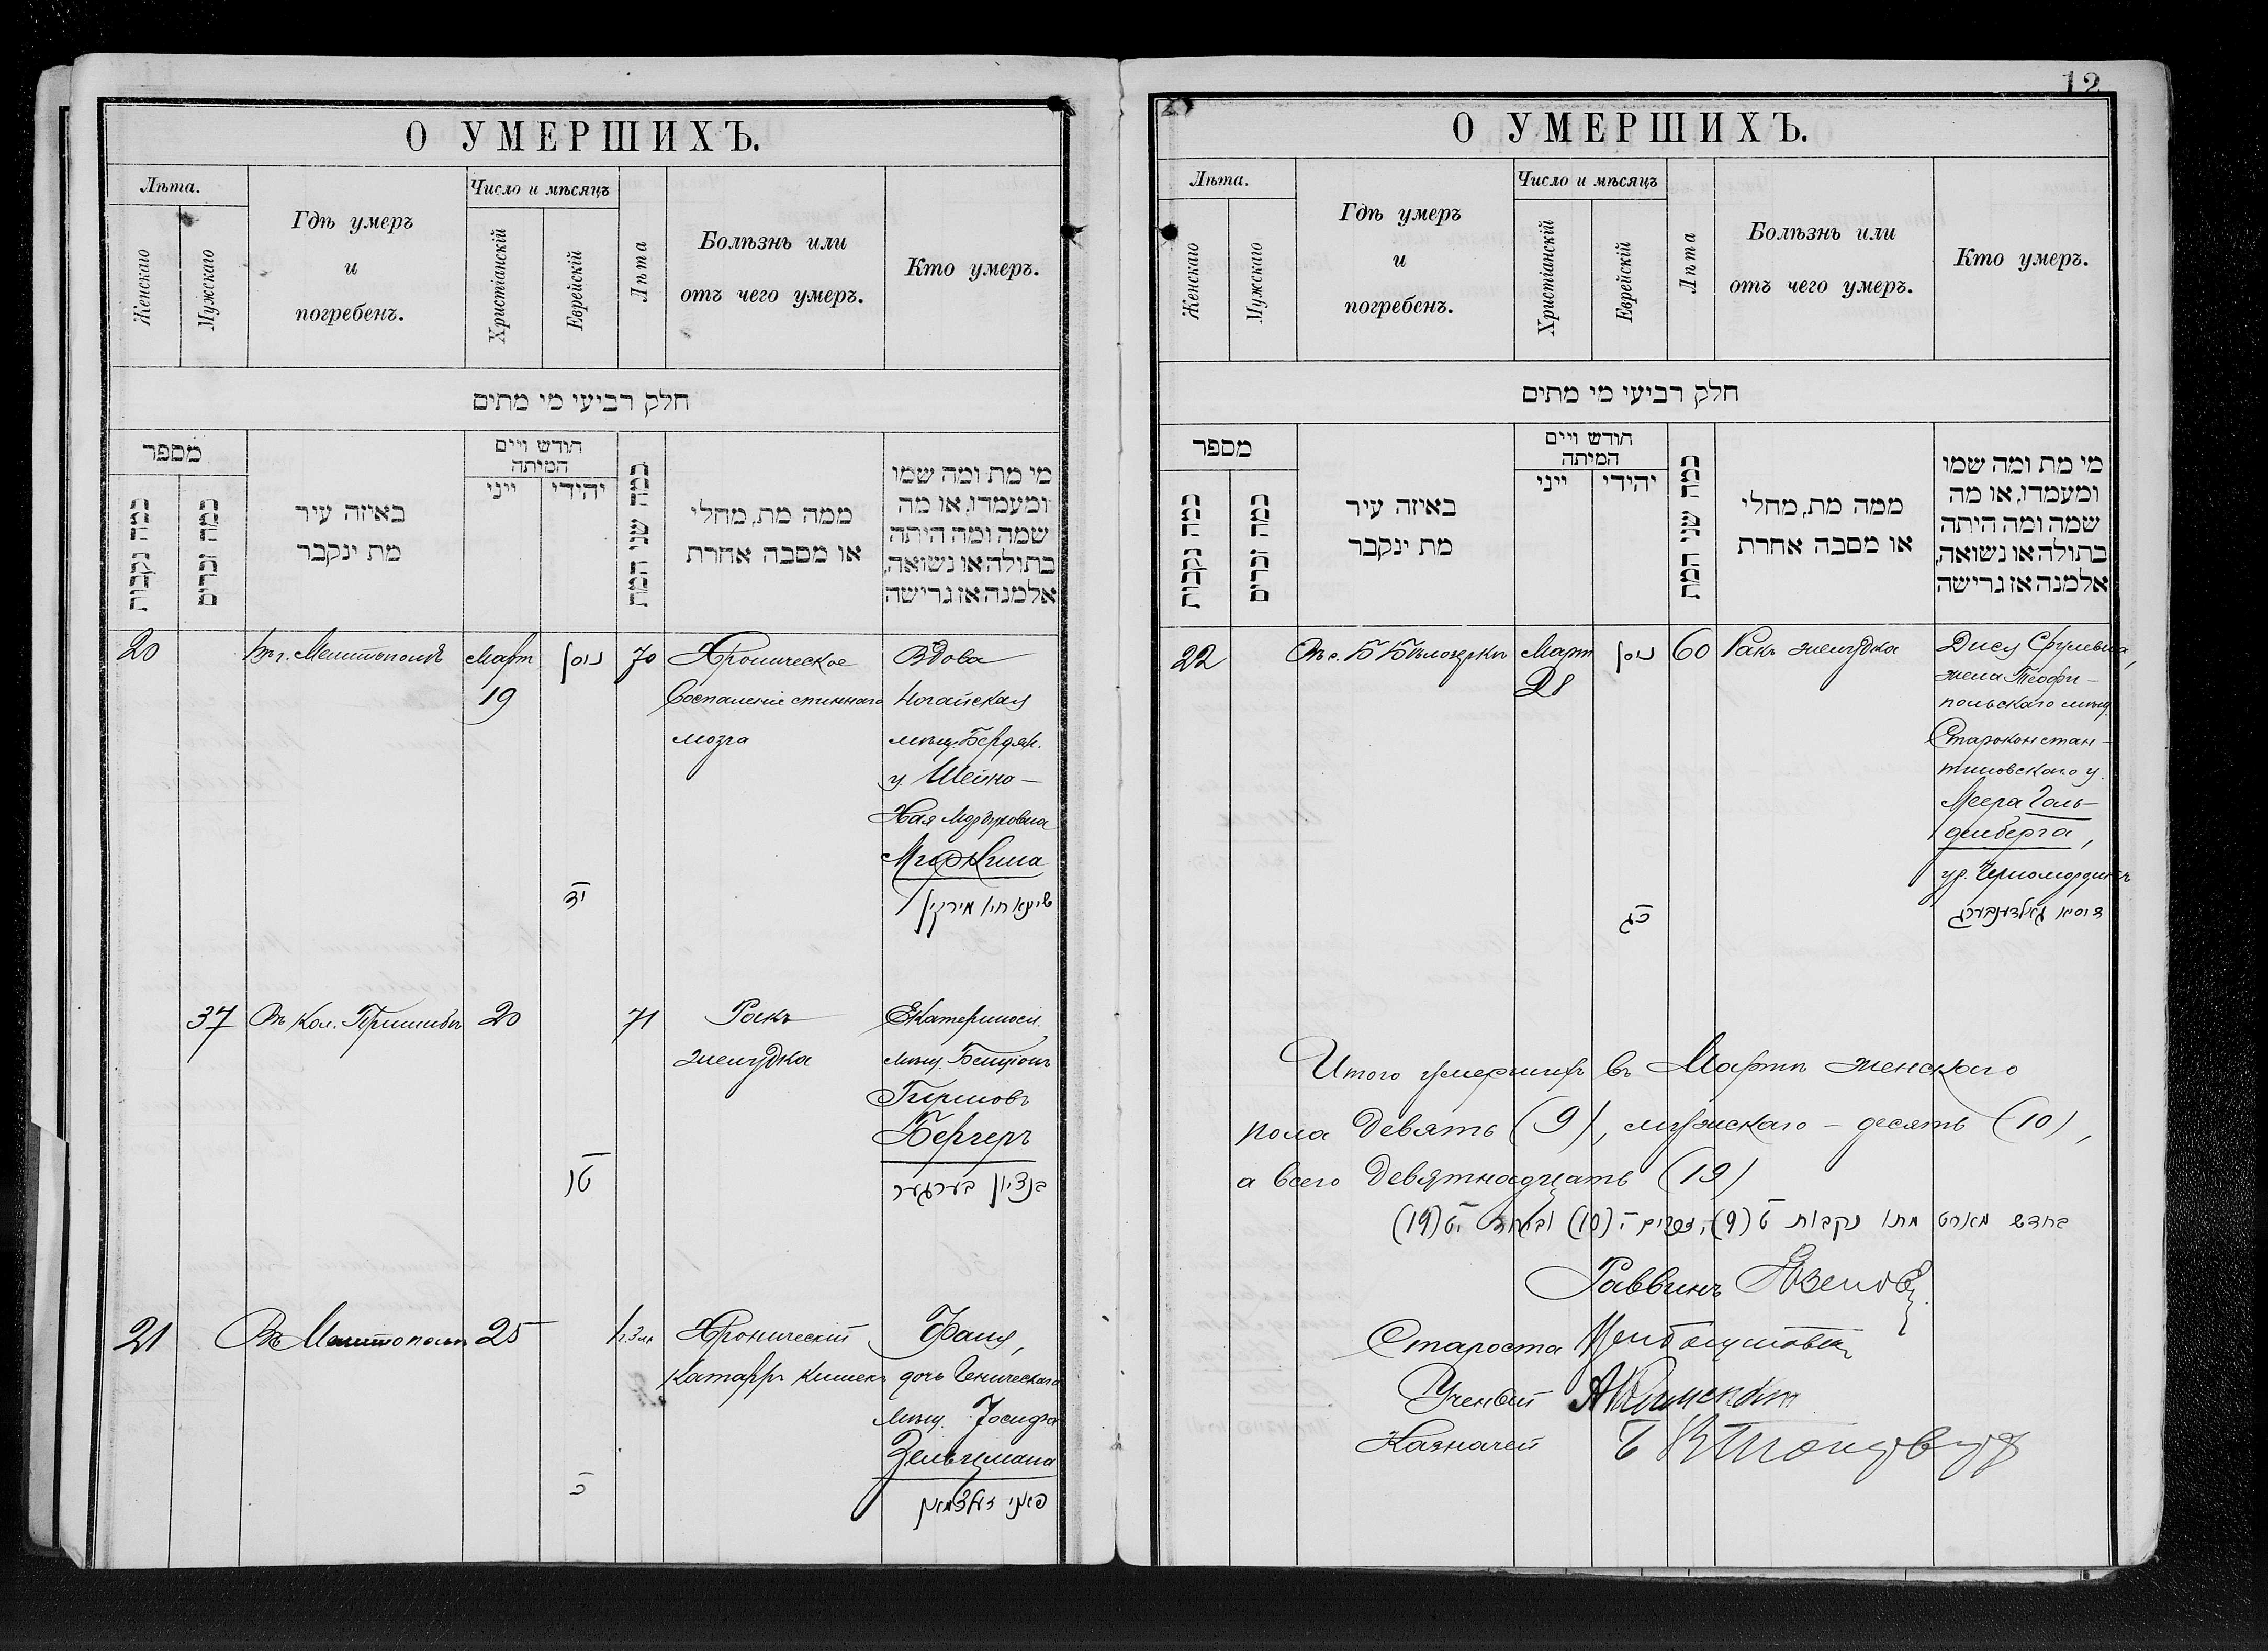 О УМЕРШИХЪ.
Лѣта.
Женскаго
Мужскаго
Гдѣ умеръ
и
погребенъ.
Число и мѣсяцъ
Христіанскій
Еврейскій
Лѣта
Болѣзнь или
отъ чего умеръ.
Кто умеръ.
חלק רביעי מי מתים
מספר
כמה נקבות
כמה זכרים
באיזה עיר
מת ינקבר
חודש ויים
המיתה
ייני
יהידי
כמה שני המת
ממה מת, מחלי
או מסבה אחרת
מי מת ומה שמו
ומעמדו, או מה
שמה ומה היתה
בתולה או נשואה,
אלמנה אז גרישה
20
Въ г. Мелитополѣ
Март
19
ניסן
יד
70
Хроническое
воспаленіе спиннаго
мозга
Вдова
Ногайская
мѣщ. Бердян.
у. Шейна-
Хая Мордуховна
Миркина
שיינא חיה מירקין
37
Въ кол. Пришибъ
20
טו
71
Ракъ
желудка
Екатериносл.
мѣщ. Бенціонъ
Бергеръ
בנציון בערגער
21
Въ Мелитополѣ
25
כ
Хроническій
Катарръ кишекъ
Фаня,
дочь Геническаго
мѣщ. Іосифа
Зельцмана
פאני זעלצמאן
12
О УМЕРШИХЪ.
Лѣта.
Женскаго
Мужскаго
Гдѣ умеръ
и
погребенъ.
Число и мѣсяцъ
Христіанскій
Еврейскій
Лѣта
Болѣзнь или
отъ чего умеръ.
Кто умеръ.
חלק רביעי מי מתים
מספר
כמה נקבות
כמה זכרים
באיזה עיר
מת ינקבר
חודש ויים
המיתה
ייני
יהידי
כמה שני המת
ממה מת, מחלי
או מסבה אחרת
מי מת ומה שמו
ומעמדו, או מה
שמה ומה היתה
בתולה או נשואה,
אלמנה אז גרישה
22
Въ с. Б Бѣлозеркѣ
Март
28
ניסן
כג
60
Ракъ желудка
Дися Срулевна,
жена Теофи-
польскаго мѣщ.
Староконстан-
тиновскаго у.
Меера Голь-
денберга,
ур. Черномордикъ
דיסיא גאלדענבערג
Итого умершихъ въ Мартѣ женскаго
пола девять (9), мужскаго - десять (10),
а всего девятнадцать (19)
בחדש מארט מתו נקבות ט (9), זכרים י (10) יט (19)
Раввинъ
Староста
Ученый
Казначей